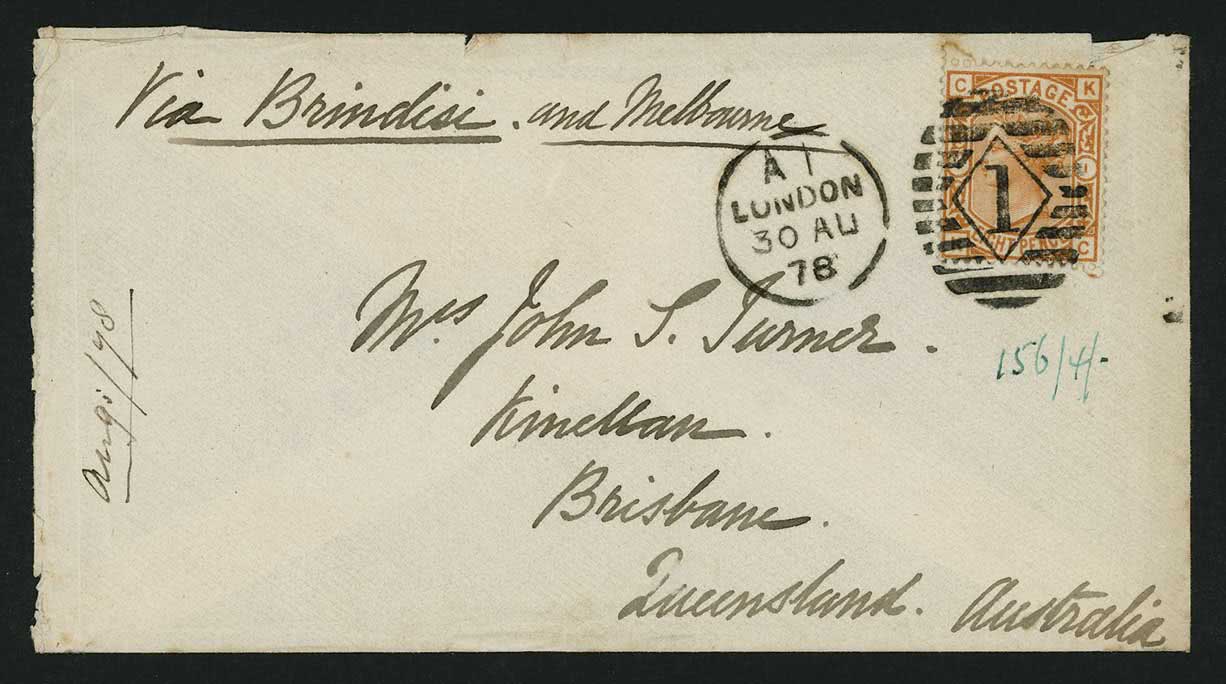 Via Brindisi. and Melbourne
C K
POSTAGE
1
EIGHT PENCE
C
A 1
LONDON
30 AU
78
1
Mrs John S. Turner.
Kinellan.
Brisbane.
Queensland. Australia
156/4/-
Augt/78